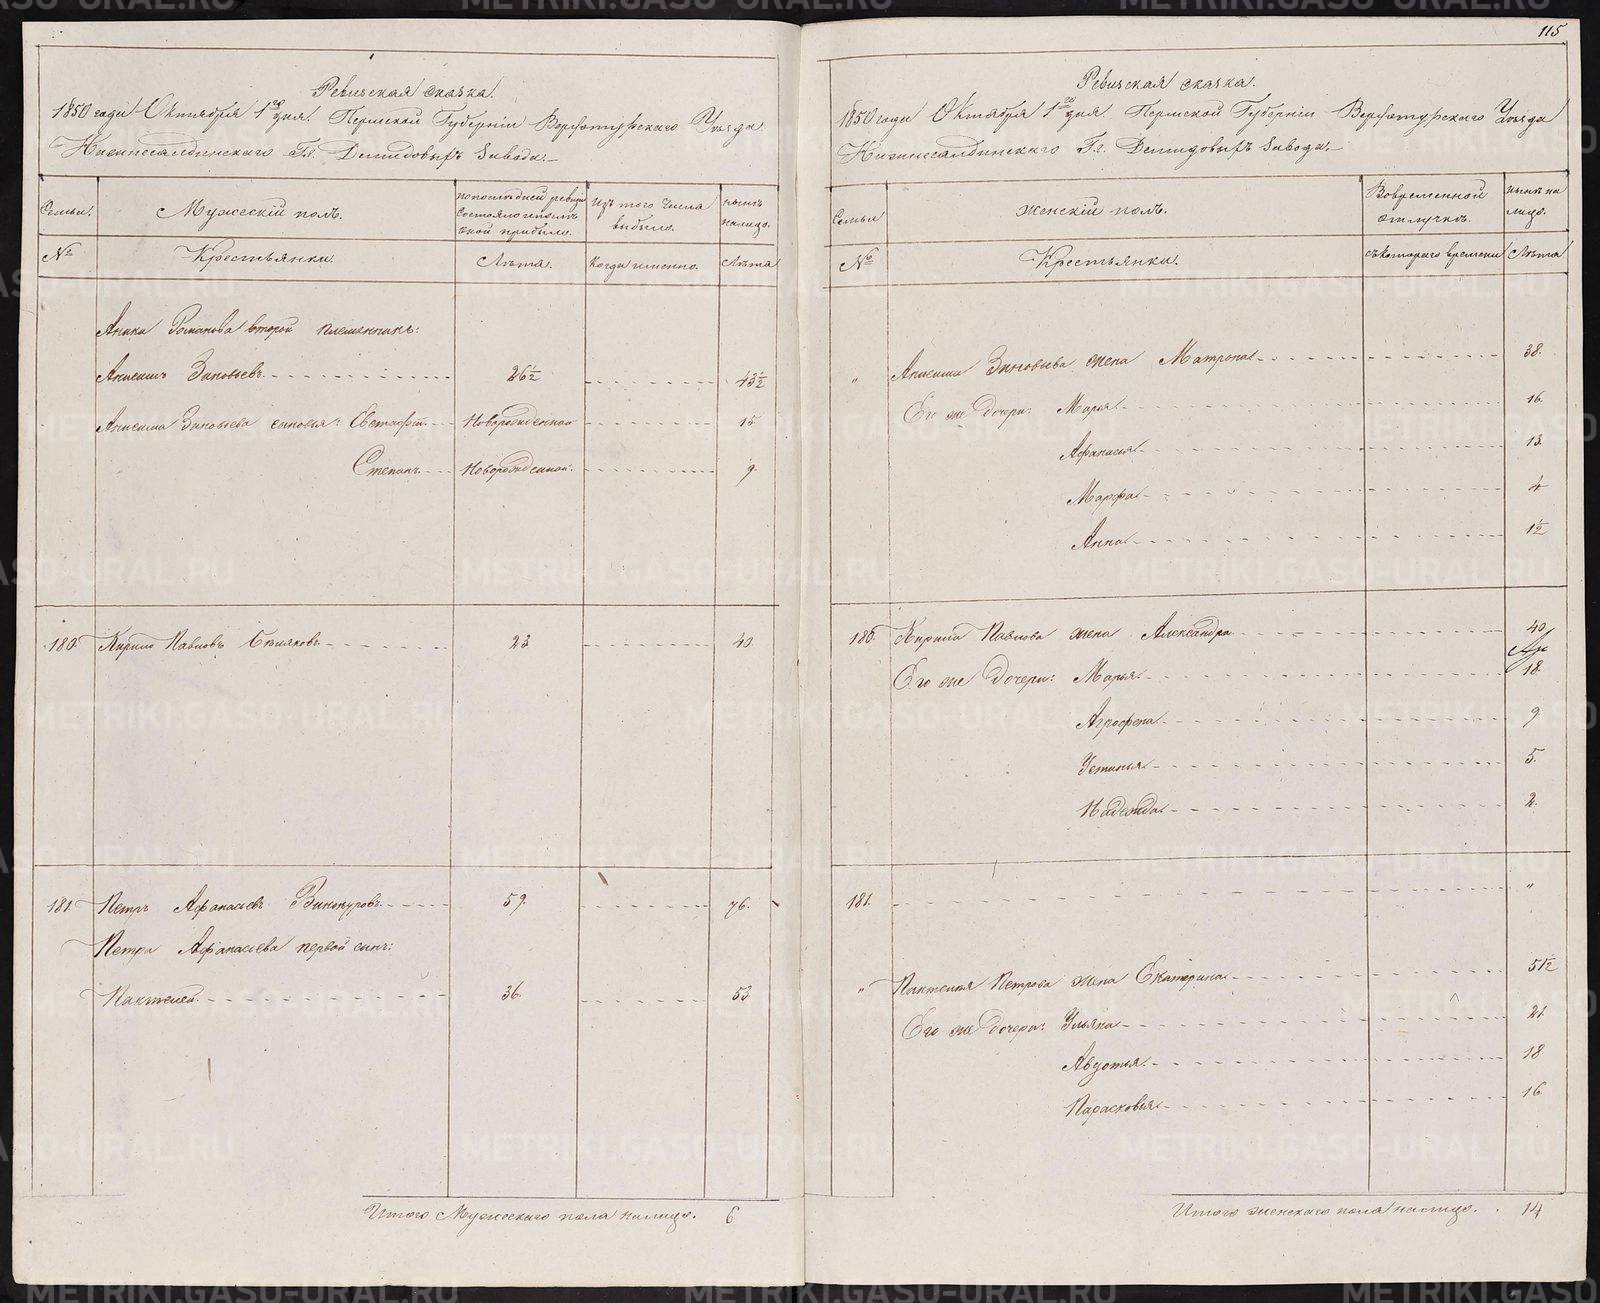 115
Ревизская сказка.
1850 года Октября 1го дня. Пермской Губерніи Верхотурскаго Уѣзда
Нижнесалдинскаго Гг. Демидовыхъ завода.
Семьи.
Мужескій полъ.
По послѣдней ревизіи состояло и послѣ оной прибыло.
Изъ того числа выбыло.
Нынѣ на лицо.
№
Крестьянки.
Лѣта.
Когда именно.
Лѣта
Аники Романова второй племянникъ:
Анисимъ Зиновьевъ 26½ 43½
Анисима Зиновьева сыновья: Евстафій Новорожденной 15
Степанъ Новорожденной. 9.
180. Кирило Павловъ Бѣляковъ 23 40
181 Петръ Афанасьевъ Винокуровъ 59. 76.
Петра Афанасьева первой сынъ:
Пантелей 36. 53
Итого Мужескаго пола налицо. 6
Ревизская сказка.
1850 года Октября 1го дня. Пермской Губерніи Верхотурскаго Уѣзда
Нижнесалдинскаго Гг. Демидовыхъ завода.
Семьи
Женскій полъ.
Во временной отлучкѣ.
Нынѣ на лицо.
№
Крестьянки.
Съ котораго времени
Лѣта
" Анисима Зиновьева жена Матрона 38.
Его же дочери: Марья 16.
Афанасья 13.
Марфа 4
Анна 1½
180. Кирила Павлова жена Александра 40
Его же дочери: Марья 18.
Агрофена 9
Устинья 5.
Надежда 2.
181. "
" Пантелея Петрова жена Екатерина 51½
Его же дочери: Ульяна 21.
Авдотья 18
Парасковья 16
Итого женскаго пола налицо. 14
METRIKI.GASO-URAL.RU